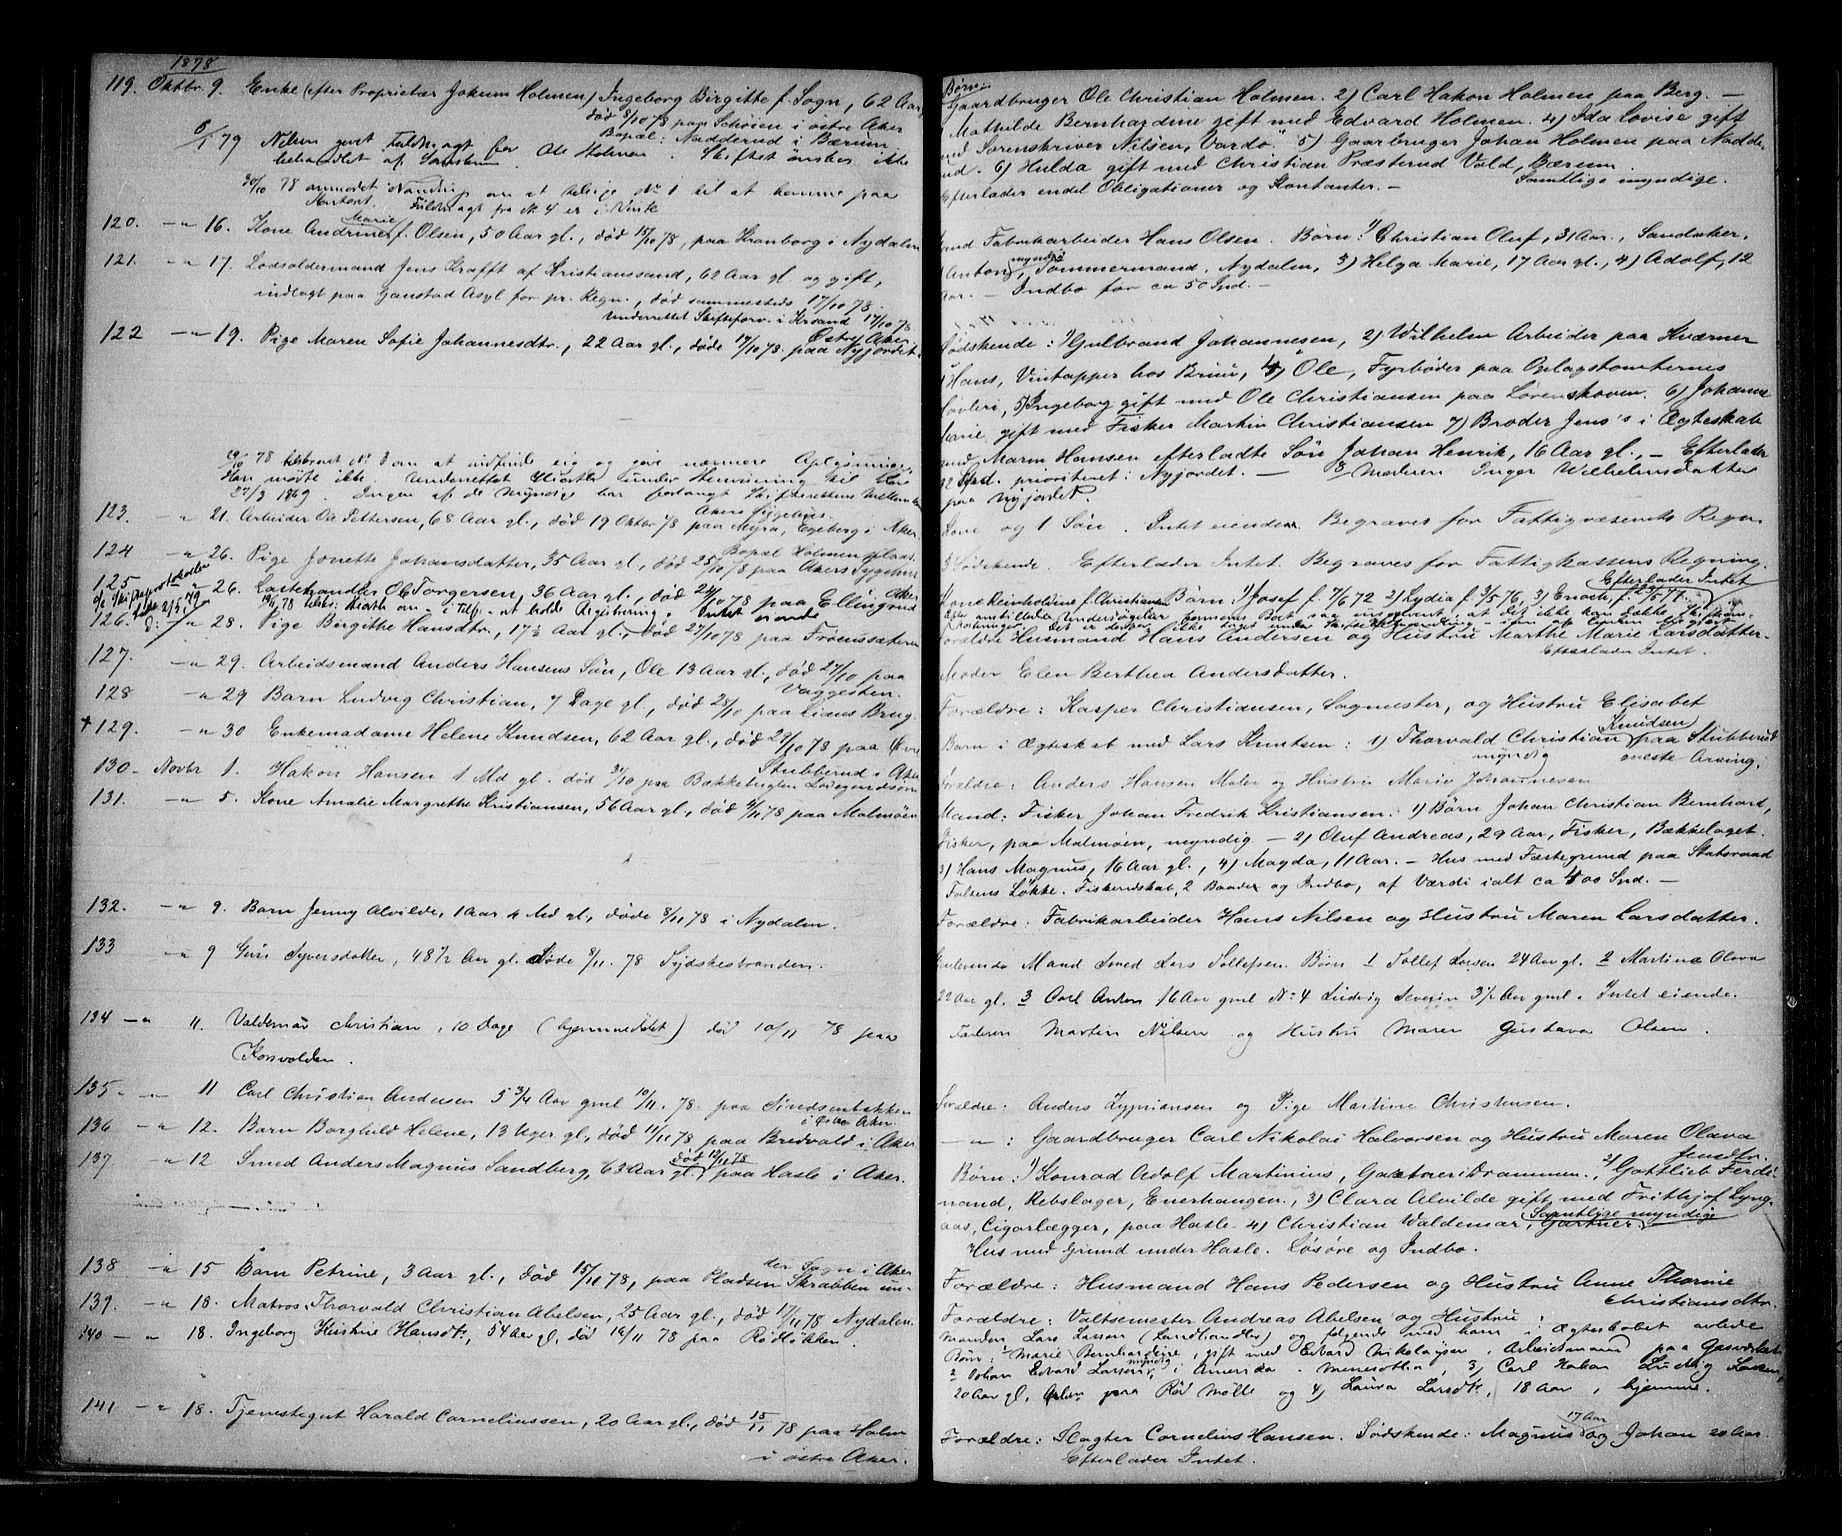 1878
119. Oktbr. 9. Enke (efter Proprietær Jokum Holmen) Ingeborg Birgitte f. Sogn, 62 Aar
død 8/10 78 paa Schøien i østre Aker
Bopæl: Nadderud i Bærum.
6/1 79 Nilsen givet Fuldmagt for Ole Holmen. Skiftet ønskes ikke
behandlet af
30/10 78 anmodet om at tilsige No 1 til at komme paa
Kontoret. Fuldmagt fra No 4 er i Virk
120. -"- 16. Kone Andrine Marie f. Olsen, 50 Aar gl., død 15/10 78, paa Kranborg i Nydalen
121. -"- 17. Lodsoldermand Jens Krafft af Kristianssand, 62 Aar gl. og gift,
indlagt paa Gaustad Asyl for pr. Regn., død sammesteds 17/10 78.
Underrettet Skifteforv. i Krsand 17/10 78.
122 -"- 19. Pige Maren Sofie Johannesdtr., 22 Aar gl., døde 17/10 78. paa Nyjordet Østre Aker
29/10 78 tilskrevet No 3 om at indfinde sig og give nærmere Oplysninger.
Han mødte ikke. Underrettet under Henvisning til
27/3 1869. Ingen af de Myndige har forlangt Skifterettens
123. -"- 21. Arbeider Ole Pettersen, 68 Aar gl., død 19 Oktbr 78 paa Akers Sygehus. Myra, Egeberg i Aker
124 -"- 26. Pige Jonette Johansdatter, 35 Aar gl., død 25/10 78 paa Akers Sygehus
Bopæl Holmens plads
125 -"- 26. Lastehandler Ole Torgersen, 36 Aar gl., død 24/10 78 paa Ellingsrud Aker
126. -"- 28. Pige Bergithe Hansdtr., 17½ Aar gl., død 27/10 78 paa Frønessæteren
127. -"- 29. Arbeidsmand Anders Hansens Søn, Ole 13 Aar gl., død 27/10 paa
Vaggesten.
128 -"- 29 Barn Ludvig Christian, 7 Dage gl., død 28/10 paa Lians Brug.
+ 129. -"- 30 Enkemadame Helene Knudsen, 62 Aar gl., død 29/10 78 paa Øvre
Stubberud i Aker
130 - Novbr 1. Hakon Hansen 1 Md gl. død 31/10 paa Bækkelagten Løisegaardsern
131. -"- 5. Kone Amalie Margrethe Kristiansen, 56 Aar gl., død 4/11 78 paa Malmøen
132. -"- 9. Barn Jenny Alvilde, 1 Aar 4 Md gl., døde 8/11 78 i Nydalen.
133 -"- 9 Guri Syversdatter, 48½ Aar gl. døde 8/11. 78 Tydskestranden.
134 -"- 11. Valdemar Christian, 10 Dage (hjemmedøbt) død 10/11 78 paa
Korsvolden.
135 - -"- 11 Carl Christian Andersen 5 3/4 Aar gml 10/11. 78. paa
i Østre Aker.
136 -"- 12. Barn Borghild Helene, 13 Uger gl., død 11/11 78 paa Bredvold i Aker.
137 -"- 12 Smed Anders Magnus Sandberg, 63 Aar gl. død 12/11 78 paa Hasle i Aker.
138 -"- 15 Barn Petrine, 3 Aar gl., død 15/11 78, paa Pladsen Skrabben un-
der Sogn i Aker
139. -"- 18. Matros Thorvald Christian Abelsen, 25 Aar gl., død 17/11 78 Nydalen.
140 - " - 18. Ingeborg Kistine Hansdtr, 54 Aar gl, død 16/11 78 paa Rødløkken.
141 -"- 18. Tjenestegut Harald Corneliussen, 20 Aar gl., død 15/11 78 paa Holm
i østre Aker.
Børn:
Gaardbruger Ole Christian Holmen. 2) Carl Hakon Holmen paa Berg. -
Mathilde Bernhardine gift med Edvard Holmen. 4) Ida Lovise gift
med Sorenskriver Nilsen, Vardø. 5) Gaarbruger Johan Holmen paa Nadde-
rud. 6) Hulda gift med Christian Præsterud Vold, Bærum.
Efterlader endel Obligationer og Kontanter. - Samtlige myndige.
Mand Fabrikarbeider Hans Olsen. Børn: 1) Christian Oluf, 31 Aar., Sandaker.
Anton, myndig Tømmermand, Nydalen, 3) Helga Marie, 17 Aar gl., 4) Adolf, 12
Aar. - Indbo for ca 50 Spd. -
Sødskende: 1) Gulbrand Johannesen, 2) Wilhelm Arbeider paa Kværner
3) Hans, Vintapper hos Bruu, 4) Ole, Fyrbøder paa Oplagstomternes
Høvleri, 5) Ingeborg gift med Ole Christiansen paa Lørenskoven. 6) Johanne
Marie gift med Fisker Martin Christiansen 7) Broder Jens's i Ægteskab
med Marin Hansen efterladte Søn Johan Henrik, 16 Aar gl., - Efterlader
12 Spd. prioriteret i Nyjordet. - 8 Moderen Inger Wilhelmsdatter
paa Nyjordet.
Kone og 1 Søn. Intet eiende. Begraves for Fattigvæsenets Regn.
3 Sødskende. Efterlader Intet. Begraves for Fattigkassens Regning.
Efterlader Intet
Kone Reinholdine f. Christiansen Børn: 1) Josef f. 7/6 72 2) Lydia f. 3/5 76, 3) Enoch, f. 23/5 77.
Forældre Husmand Hans Andersen og Hustru Marthe Marie Larsdatter.
Efterlader Intet.
Moder Elen Berthea Andersdatter.
Forældre: Kasper Christiansen, Sagmester, og Hustru Elisabet
Børn i Ægteskab med Lars Knutsen: 1) Thorvald Christian Knudsen paa Stubberud
myndig eneste Arving.
Forældre: Anders Hansen Maler og Hustru Marie Johannesen
Mand: Fisker Johan Fredrik Kristiansen. 1) Børn Johan Christian Bernhard,
Fisker, paa Malmøen, myndig - 2) Oluf Andreas, 29 Aar, Fisker, Bækkelaget.
3) Hans Magnus, 16 Aar gl., 4) Magda, 11 Aar. - Hus med Fæstegrund paa Statsraad
Falsens Løkke. Fiskeredskab, 2 Baader og Indbo, af Værdi ialt ca 400 Spd. -
Forældre: Fabrikarbeider Hans Nilsen og Hustru Maren Larsdatter.
Efterlevende Mand Smed Lars Tollefsen. Børn 1 Tollef Larsen 24 Aar gl. 2 Martine Olava
22 Aar gl. 3 Carl Anton 16 Aar gml No 4 Ludvig Severin 3½ Aar gml. Intet eiende.
Faderen Martin Nilsen og Hustru Maren Gustava Olsen.
Forældre: Anders Zypriansen og Pige Martine Christensen.
-"-: Gaardbruger Carl Nikolai Halvorsen og Hustru Maren Olava
Jensdtr.
Børn: 1) Konrad Adolf Martinius, Gartner i Drammen., 2) Gottlieb Ferdi-
nand, Rebslager, Enerhaugen., 3) Clara Alvilde gift med Frithjof Lyng-
aas, Cigarlægger, paa Hasle. 4) Christian Waldemar, Gartner. Samtlige myndige
Hus med Grund under Hasle. Løsøre og Indbo.
Forældre: Husmand Hans Pedersen og Hustru Anne Thorine
Christiansdtr.
Forældre: Valtsemester Andreas Abelsen og Hustru:
Manden Lars Larsen (Landhandler) og følgende med ham i Ægteskabet avlede
Børn: 1 Marie Bernhardine, gift med Edvard Nikolaysen, Arbeidsmand paa Gasværket
2 Johan Edvard Larsen, myndig i Amerika - Menesottia, 3) Carl Hakon Ludvig Larsen,
20 Aar gl, paa Rød Mølle og 4) Laura Larsdtr, 18 Aar, hjemme.
Forældre: Slagter Cornelius Hansen. Sødskende: Magnus 17 Aar og Johan 20 Aar.
Efterlader Intet.